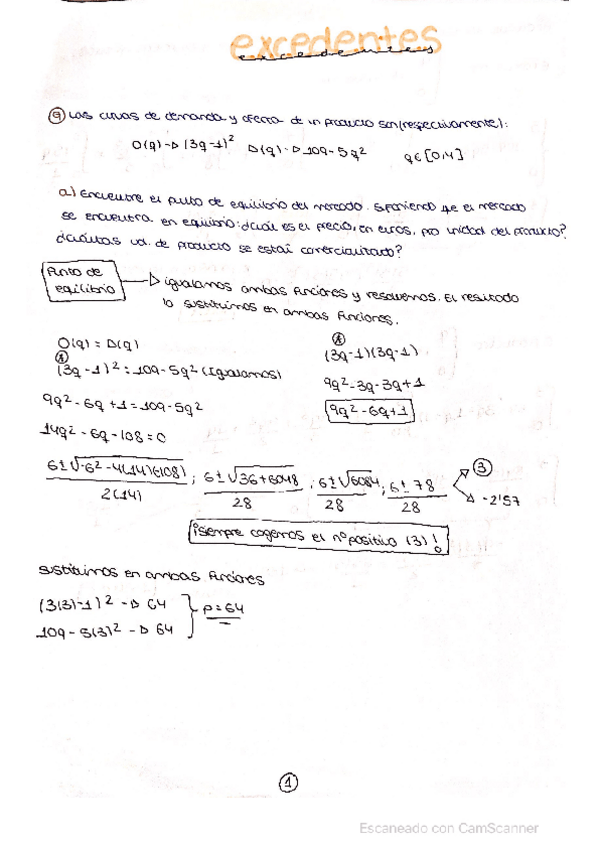 excedentes
excedentes
9 Las curvas de demanda y oferta de un producto son (respectivamente):
O(q) → (3q-1)² D(q) → 109-5q² q ∈ [0,4]
a) Encuentre el punto de equilibrio del mercado. Suponiendo que el mercado
se encuentra en equilibrio: ¿cuál es el precio, en euros, por unidad del producto?
¿cuántas ud. de producto se están comercializando?
Punto de
equilibrio
→ igualamos ambas funciones y resolvemos. El resultado
lo sustituimos en ambas funciones.
O(q) = D(q)
A
(3q-1)² = 109-5q² (Igualamos)
9q²-6q+1=109-5q²
14q²-6q-108=0
A
(3q-1)(3q-1)
9q²-3q-3q+1
9q²-6q+1
6±√-6²-4(14)(-108) / 2(14) ; 6±√36+6048 / 28 ; 6±√6084 / 28 ; 6±78 / 28
3
-2'57
¡siempre cogemos el nº positivo (3)!
Sustituimos en ambas funciones
(3(3)-1)² → 64
109-5(3)² → 64
p=64
1
Escaneado con CamScanner